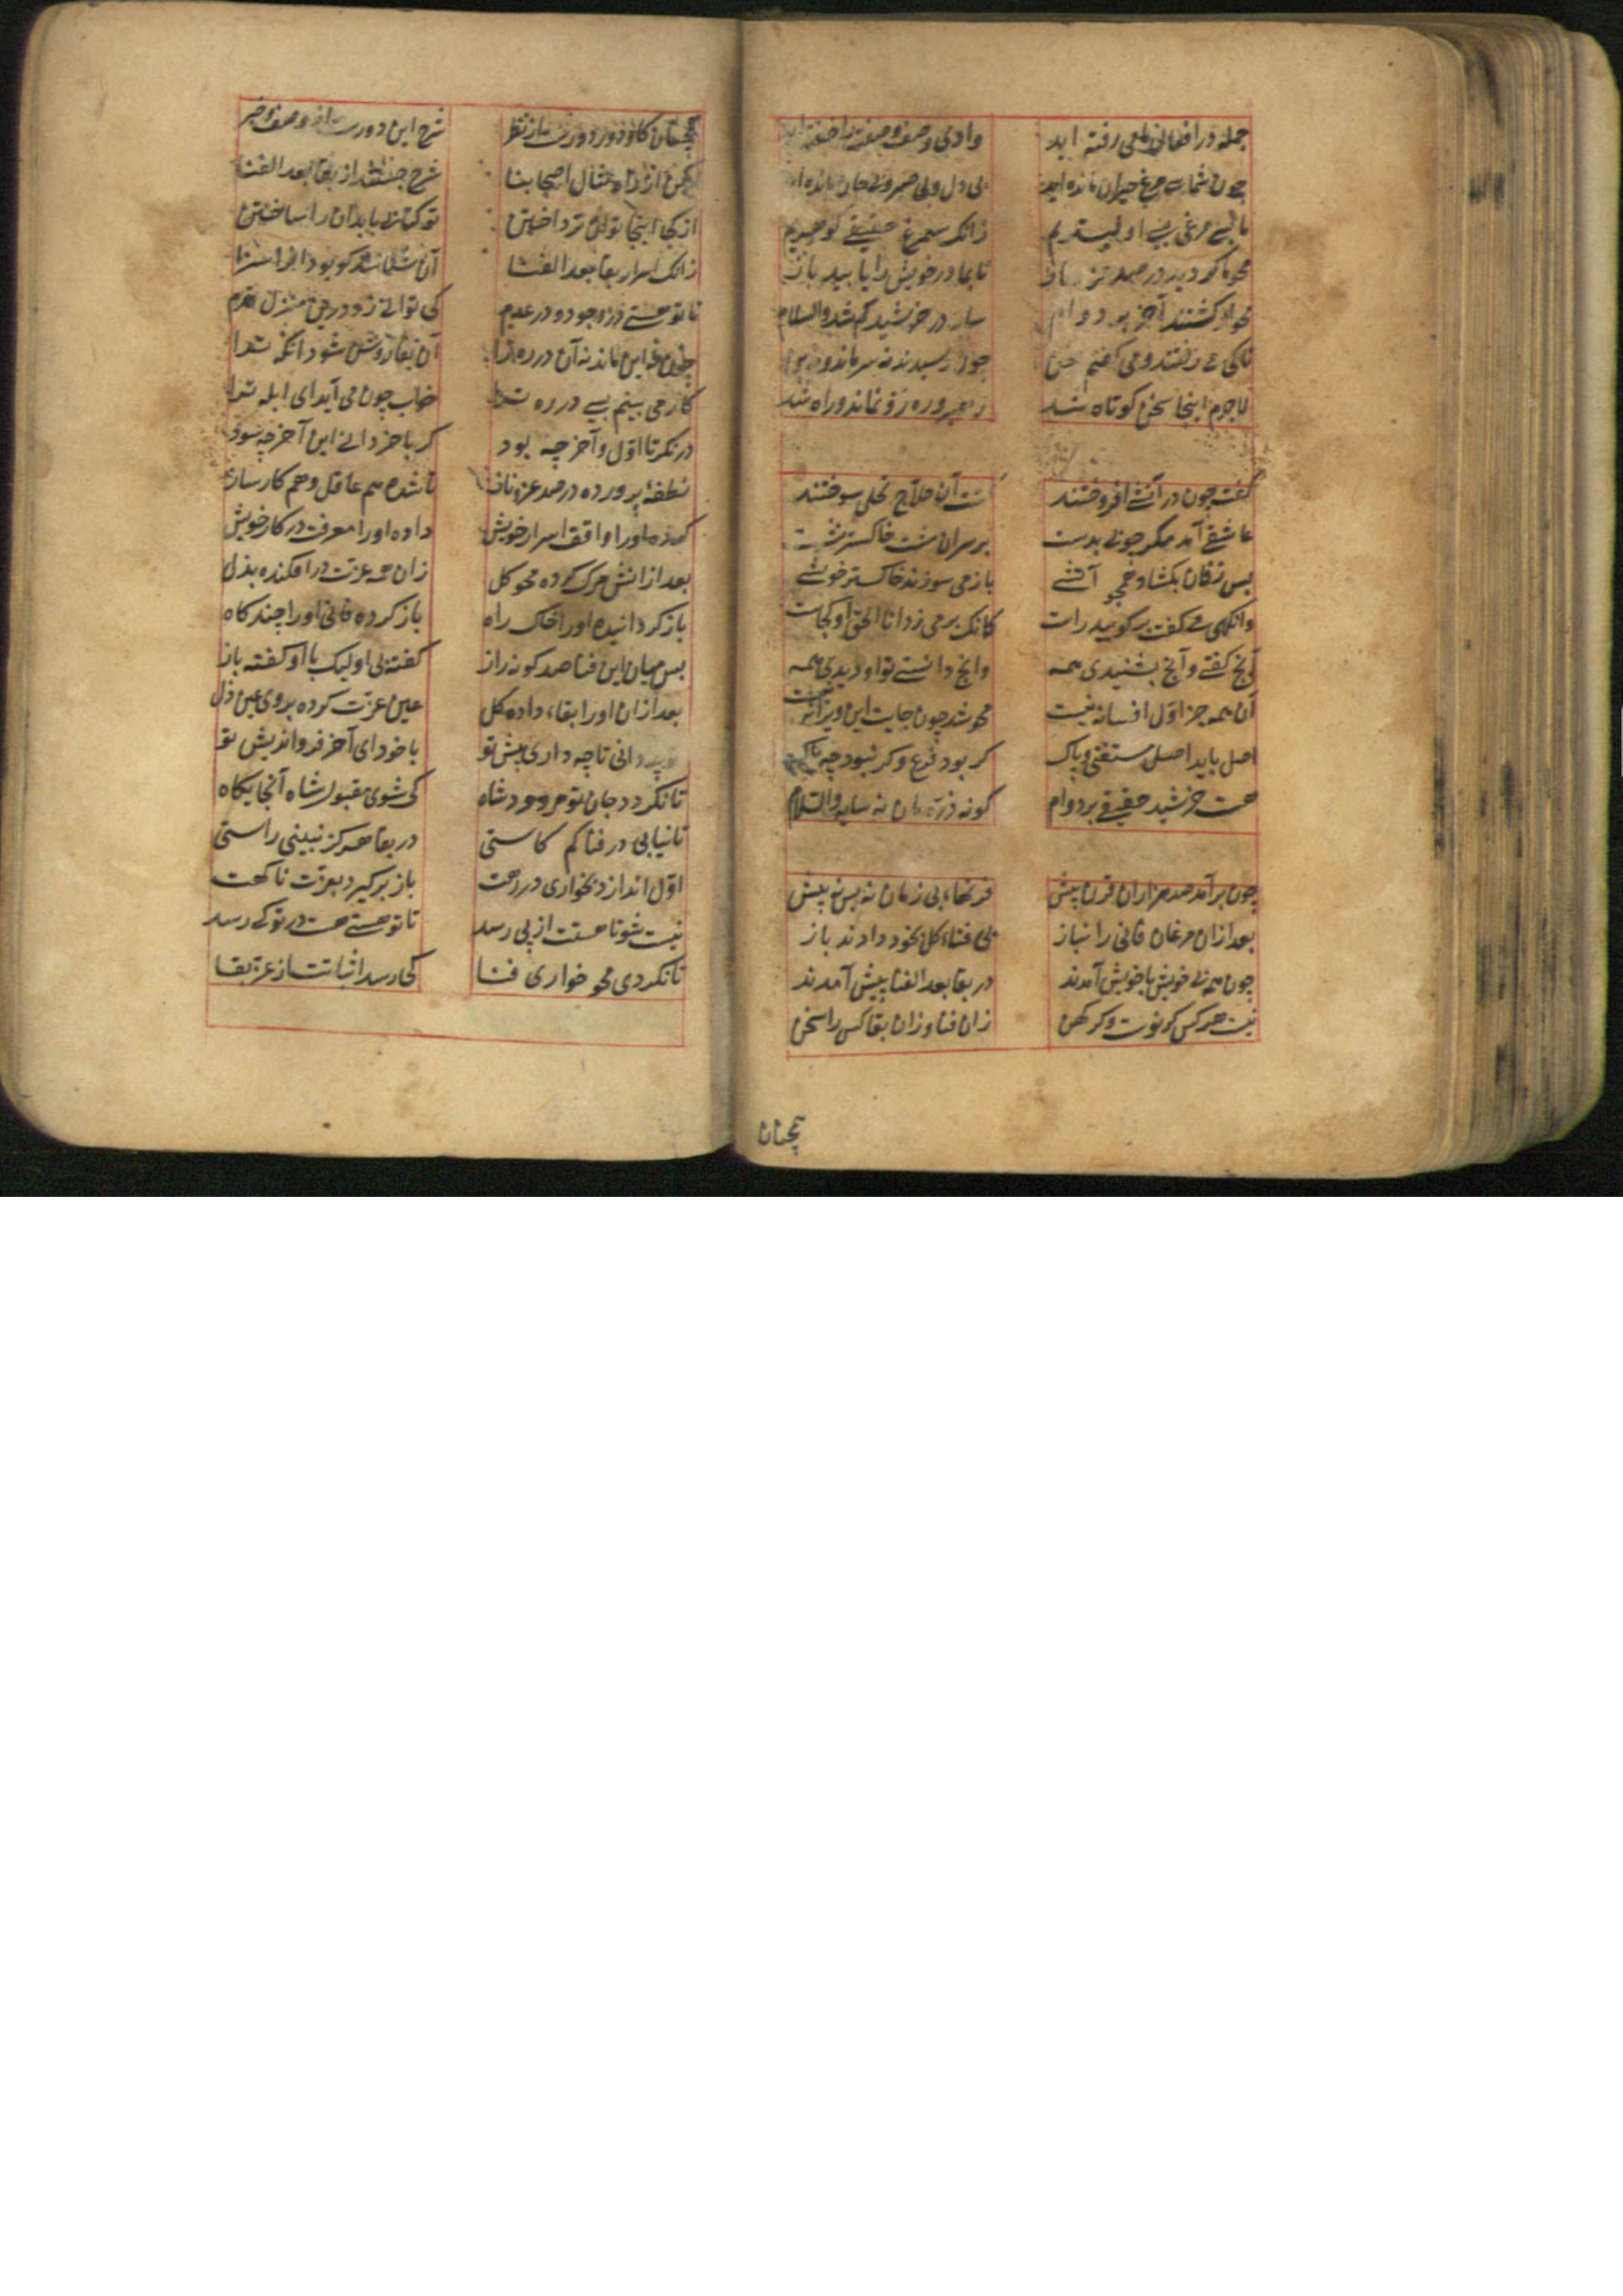 جمله در افعال می رفته اید وادی وصف و صفت را خفته اید
چون شما سی مرغ حیران مانده اید بی دل و بی صبر و بی جان مانده اید
ما بسی مرغی بسی اولیتریم زانک سیمرغ حقیقی کوهریم
محو ما کردید در صد عز و ناز تا بما در خویش را یابید باز
محو او کشتند آخر بر دوام سایه در خورشید کم شد والسلام
تا که می رفتند و می گفتم سخن چون رسیدند نه سر ماند و نه بن
لاجرم اینجا سخن کوتاه شد رهبر و ره رو نماند و راه شد
گفت چون در آتش افروختند کشت آن حلاج کلی سوختند
عاشقی آمد مکر چوبی بدست بر سر آن مشت خاکستر نشست
پس زفان بکشاد همچو آتشی باز می سوزند خاکستر خوشی
وانکهی می گفت بر کویید راست کانک بر می زد انا الحق او کجاست
آنچ کفتی و آنچ بشنیدی همه وانچ دانستی تو او دیدی همه
آن همه جز اول افسانه نیست محو شد چون جایت این ویرانه نیست
اصل باید اصل مستغنی و پاک کر بود فرع و کر نبود چه باک
هست خورشید حقیقی بر دوام کو نه ذره مان نه سایه والسلام
چون برآمد صد هزاران قرن پیش قرنهاء بی زمان نه پس نه پیش
بعد ازان مرغان فانی را بناز بی فناء کل بخود دادند باز
چون همه بی خویش با خویش آمدند در بقا بعد الفنا پیش آمدند
نیست هرکس کر نوست و کر کهن زان فنا و زان بقا کس را سخن
همچنان
همچنان کاو دور دورست از نظر شرح این دورست از وصف و خبر
لیکن از راه مثال اصحابنا شرح جستند از بقا بعد الفنا
از کجا اینجا توان پرداختن نو کتابی باید آن را ساختن
زانک اسرار بقا بعد الفنا آن شناسد کو بود آنرا سزا
تا تو هستی در وجود و در عدم کی توانی زد درین منزل قدم
چون نه این ماند نه آن در ره ترا خواب چون می آید ای ابله ترا
در نکر تا اول و آخر چه بود کر باخر دانی این آخر چه سود
نطفه پرورده در صد عز و ناز تا شده هم عاقل و هم کار ساز
کرده او را واقف اسرار خویش داده او را معرفت در کار خویش
بعد ازانش مرک کرده محو کل زان همه عزت در افکنده بذل
باز کردانیده او را خاک راه باز کرده فانی او را چند کاه
پس میان این فنا صد کونه راز کفته بی او لیک با او کفته باز
بعد ازان او را بقاء داده کل عین عزت کرده بروی عین ذل
تو چه دانی تا چه داری پیش تو با خود آی آخر فرو اندیش تو
تا نکردد جان تو مردود شاه کی شوی مقبول شاه آنجایکاه
تا نیابی در فنا کم کاستی در بقا هرکز نبینی راستی
اول اندازد بخواری در رهت باز برکیرد بعزت ناکهت
نیست شو تا هستیت از پی رسد تا تو هستی هست در تو کی رسد
تا نکردی محو خواری فنا کی رسد اثباتت از عز بقا